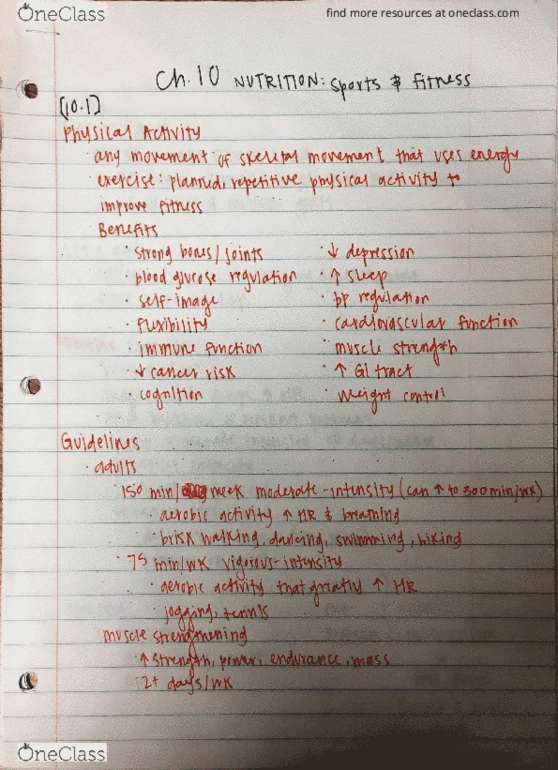 OneClass
find more resources at oneclass.com
Ch. 10 NUTRITION: Sports & Fitness
[10.1]
Physical Activity
· any movement of skeletal movement that uses energy
· exercise: planned, repetitive physical activity to
improve fitness
Benefits
· strong bones/joints · ↓ depression
· blood glucose regulation · ↑ sleep
· self-image · bp regulation
· flexibility · cardiovascular function
· immune function · muscle strength
· ↓ cancer risk · ↑ GI tract
· cognition · weight control
Guidelines
· adults
· 150 min/ week moderate-intensity (can ↑ to 300 min/wk)
· aerobic activity ↑ HR & breathing
· brisk walking, dancing, swimming, hiking
· 75 min/wk vigorous-intensity
· aerobic activity that greatly ↑ HR
jogging, tennis
muscle strengthening
· ↑ strength, power, endurance, mass
· 2+ days/wk
OneClass